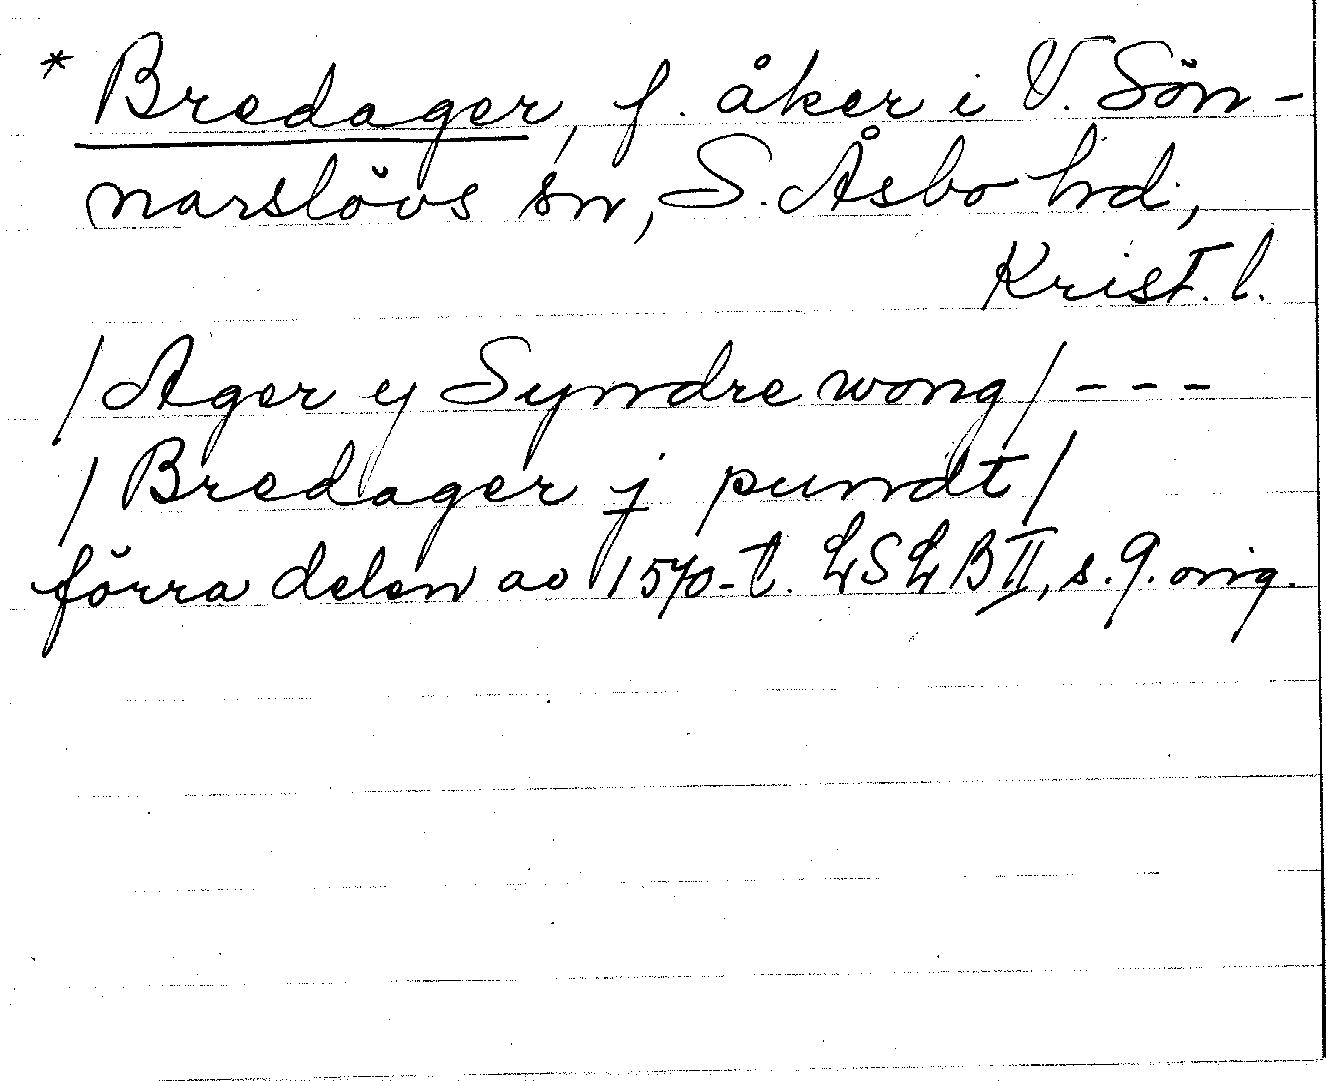 * Bredager, f. åker i V. Sön-
narslövs sn, S. Åsbo hd,
Krist. l.
/Ager y Syndre wong/ - - -
/Bredager j pundt/
förra delen av 1570-t. LSLB II, s. 9. orig.